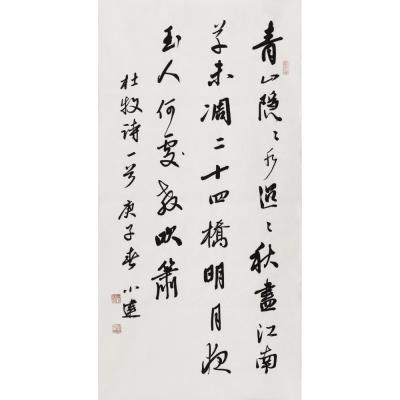 青山隐〻水迢〻秋盡江南
草未凋二十四橋明月夜
玉人何處教吹簫
杜牧诗一首庚子春小莲